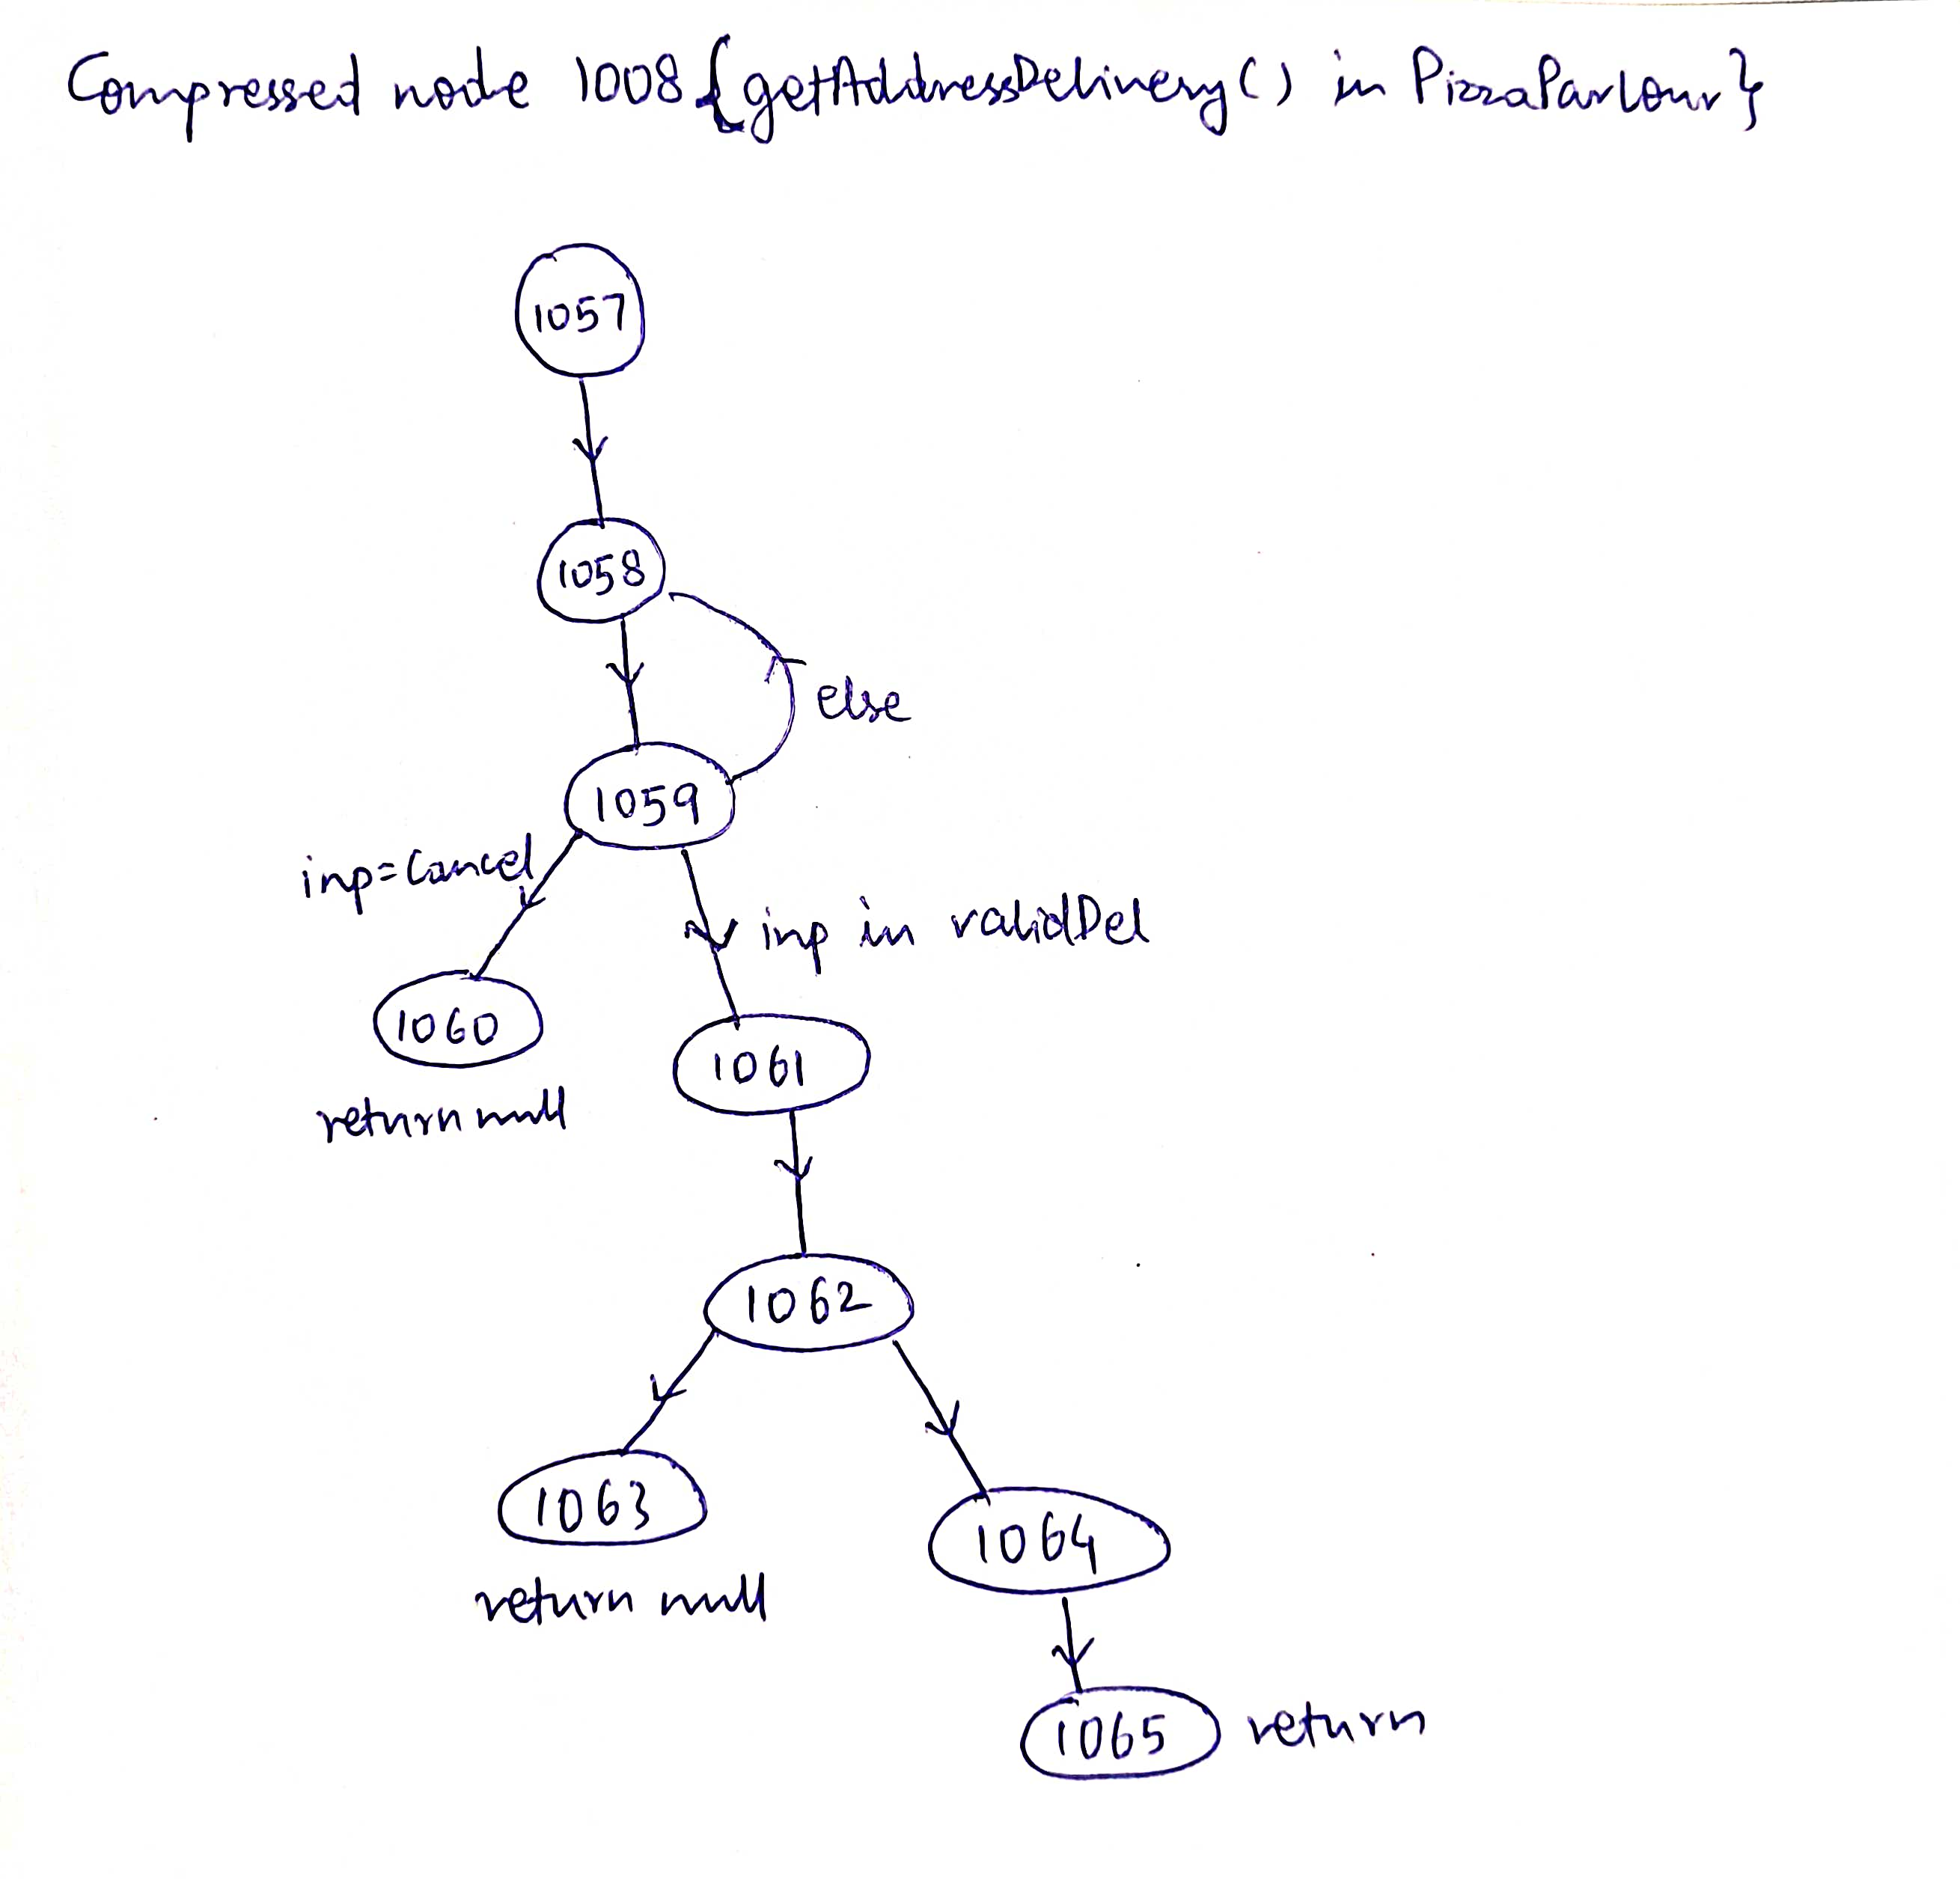 Compressed node 1008 {getAddressDelivery() in PizzaParlour}
1057
1058
else
1059
inp=Cancel
inp in validDel
1060
1061
return null
1062
1063
1064
return null
1065 return